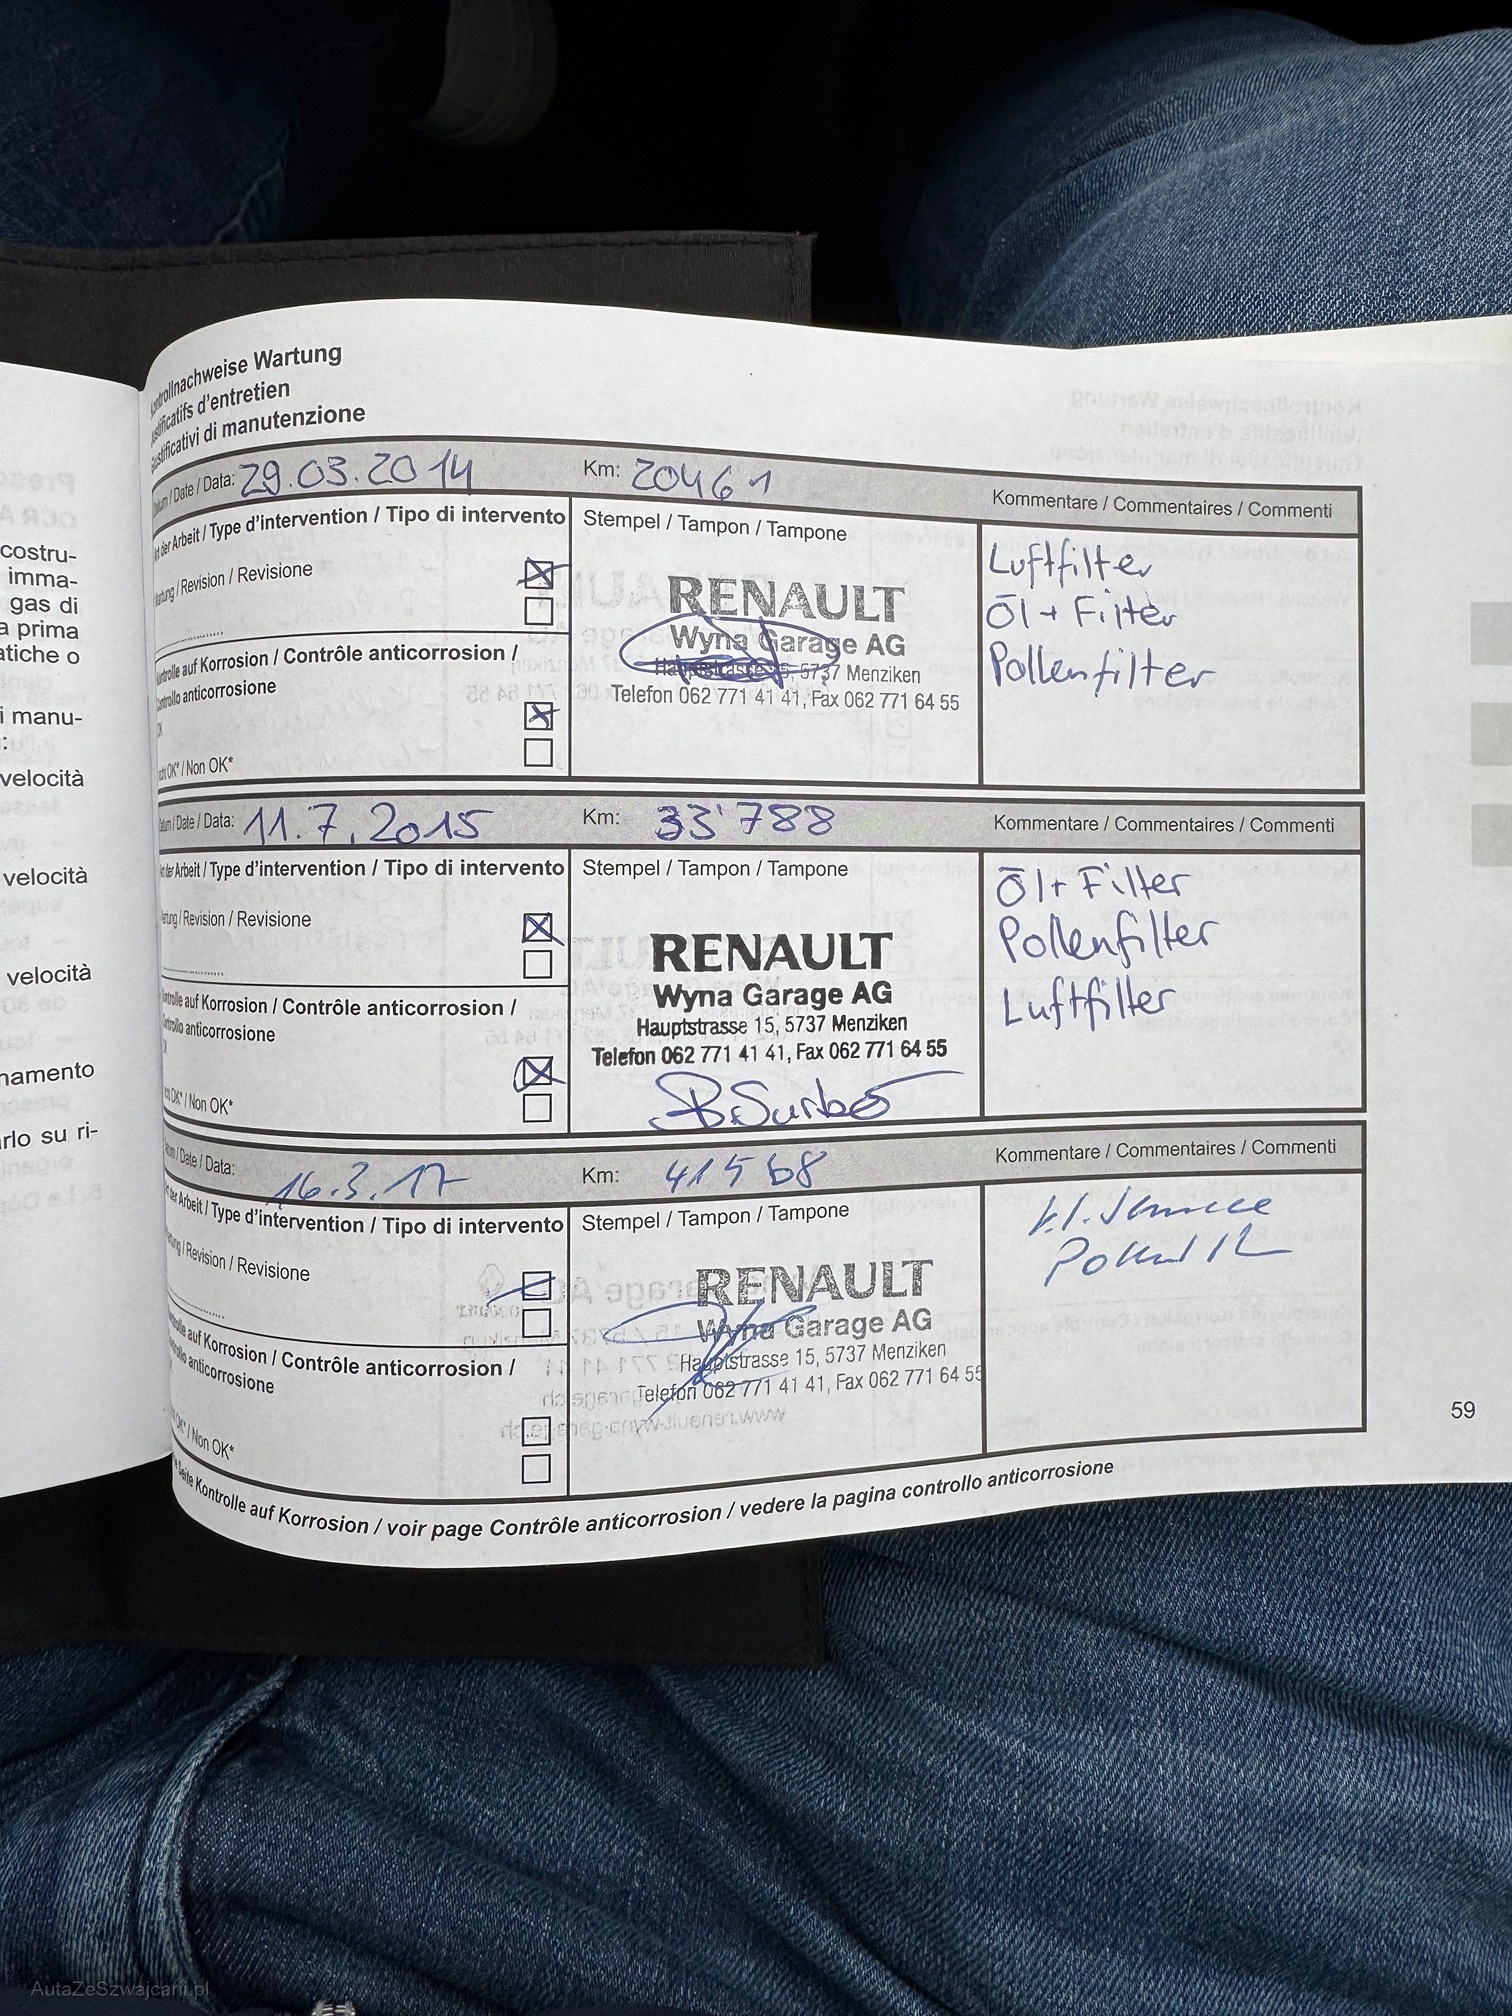 ntrollnachweise Wartung
Justificatifs d'entretien
Giustificativi di manutenzione
Datum / Date / Data: 29.03.2014 Km: 20461 Kommentare / Commentaires / Commenti
Art der Arbeit / Type d'intervention / Tipo di intervento
Stempel / Tampon / Tampone
Wartung / Revision / Revisione
RENAULT
Wyna Garage AG
Hauptstrasse 15, 5737 Menziken
Telefon 062 771 41 41, Fax 062 771 64 55
Luftfilter
Öl + Filter
Pollenfilter
ntrolle auf Korrosion / Contrôle anticorrosion /
ontrollo anticorrosione
OK
nicht OK* / Non OK*
Datum / Date / Data: 11.7.2015 Km: 33'788 Kommentare / Commentaires / Commenti
Art der Arbeit / Type d'intervention / Tipo di intervento
Stempel / Tampon / Tampone
Wartung / Revision / Revisione
RENAULT
Wyna Garage AG
Hauptstrasse 15, 5737 Menziken
Telefon 062 771 41 41, Fax 062 771 64 55
Öl + Filter
Pollenfilter
Luftfilter
ontrolle auf Korrosion / Contrôle anticorrosion /
ontrollo anticorrosione
nicht OK* / Non OK*
Datum / Date / Data: 16.3.17 Km: 41568 Kommentare / Commentaires / Commenti
Art der Arbeit / Type d'intervention / Tipo di intervento
Stempel / Tampon / Tampone
Wartung / Revision / Revisione
RENAULT
Wyna Garage AG
Hauptstrasse 15, 5737 Menziken
Telefon 062 771 41 41, Fax 062 771 64 55
ontrolle auf Korrosion / Contrôle anticorrosion /
ontrollo anticorrosione
OK* / Non OK*
Seite Kontrolle auf Korrosion / voir page Contrôle anticorrosion / vedere la pagina controllo anticorrosione
59
costru-
imma-
gas di
a prima
atiche o
i manu-
:
velocità
velocità
velocità
namento
arlo su ri-
AutaZeSzwajcarii.pl